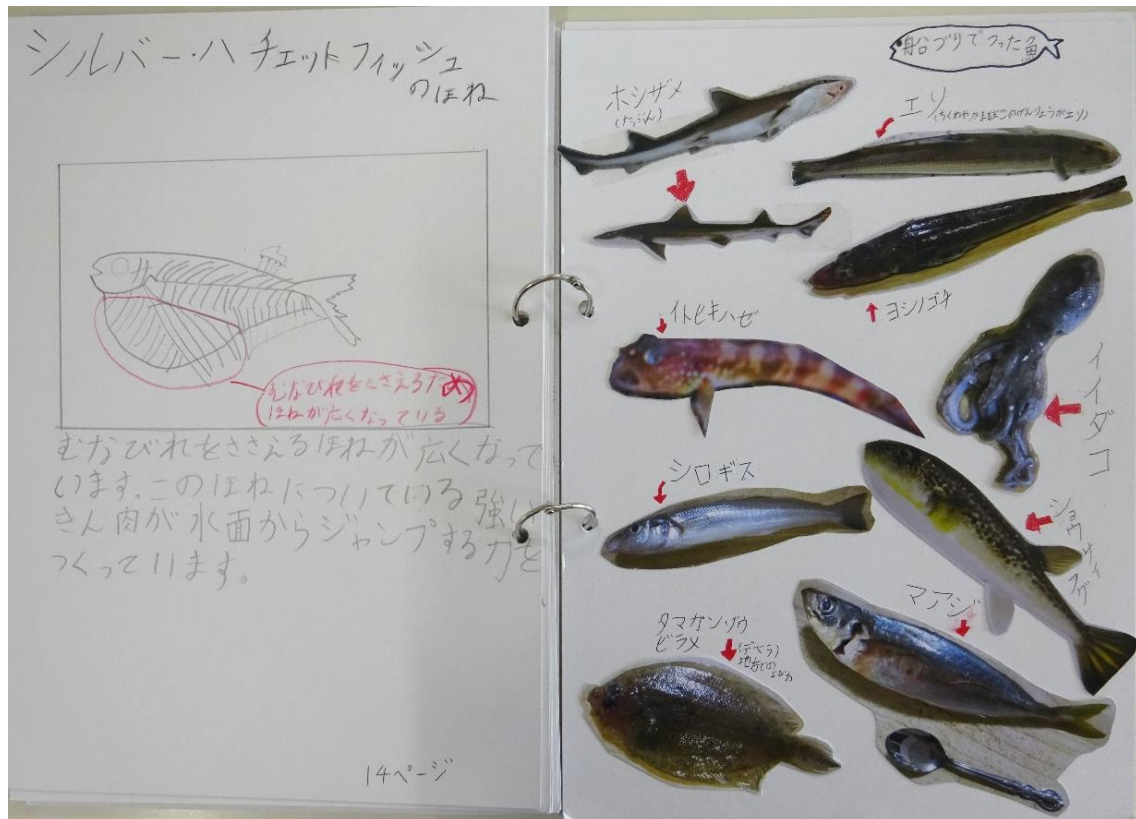 シルバー・ハチェットフィッシュ
のほね
むなびれをささえるため
ほねが広くなっている
むなびれをささえるほねが広くなって
います。このほねについている強い
きん肉が水面からジャンプする力を
つくっています。
14ページ
船づりでつった魚
ホシザメ
(たぶん)
エソ
(ちくわやかまぼこのげんりょうがエソ)
ヨシノゴチ
イトヒキハゼ
イイダコ
シロギス
ショウサイフグ
マアジ
タマガンゾウ
ビラメ
(デベラ)
地方での
よび方